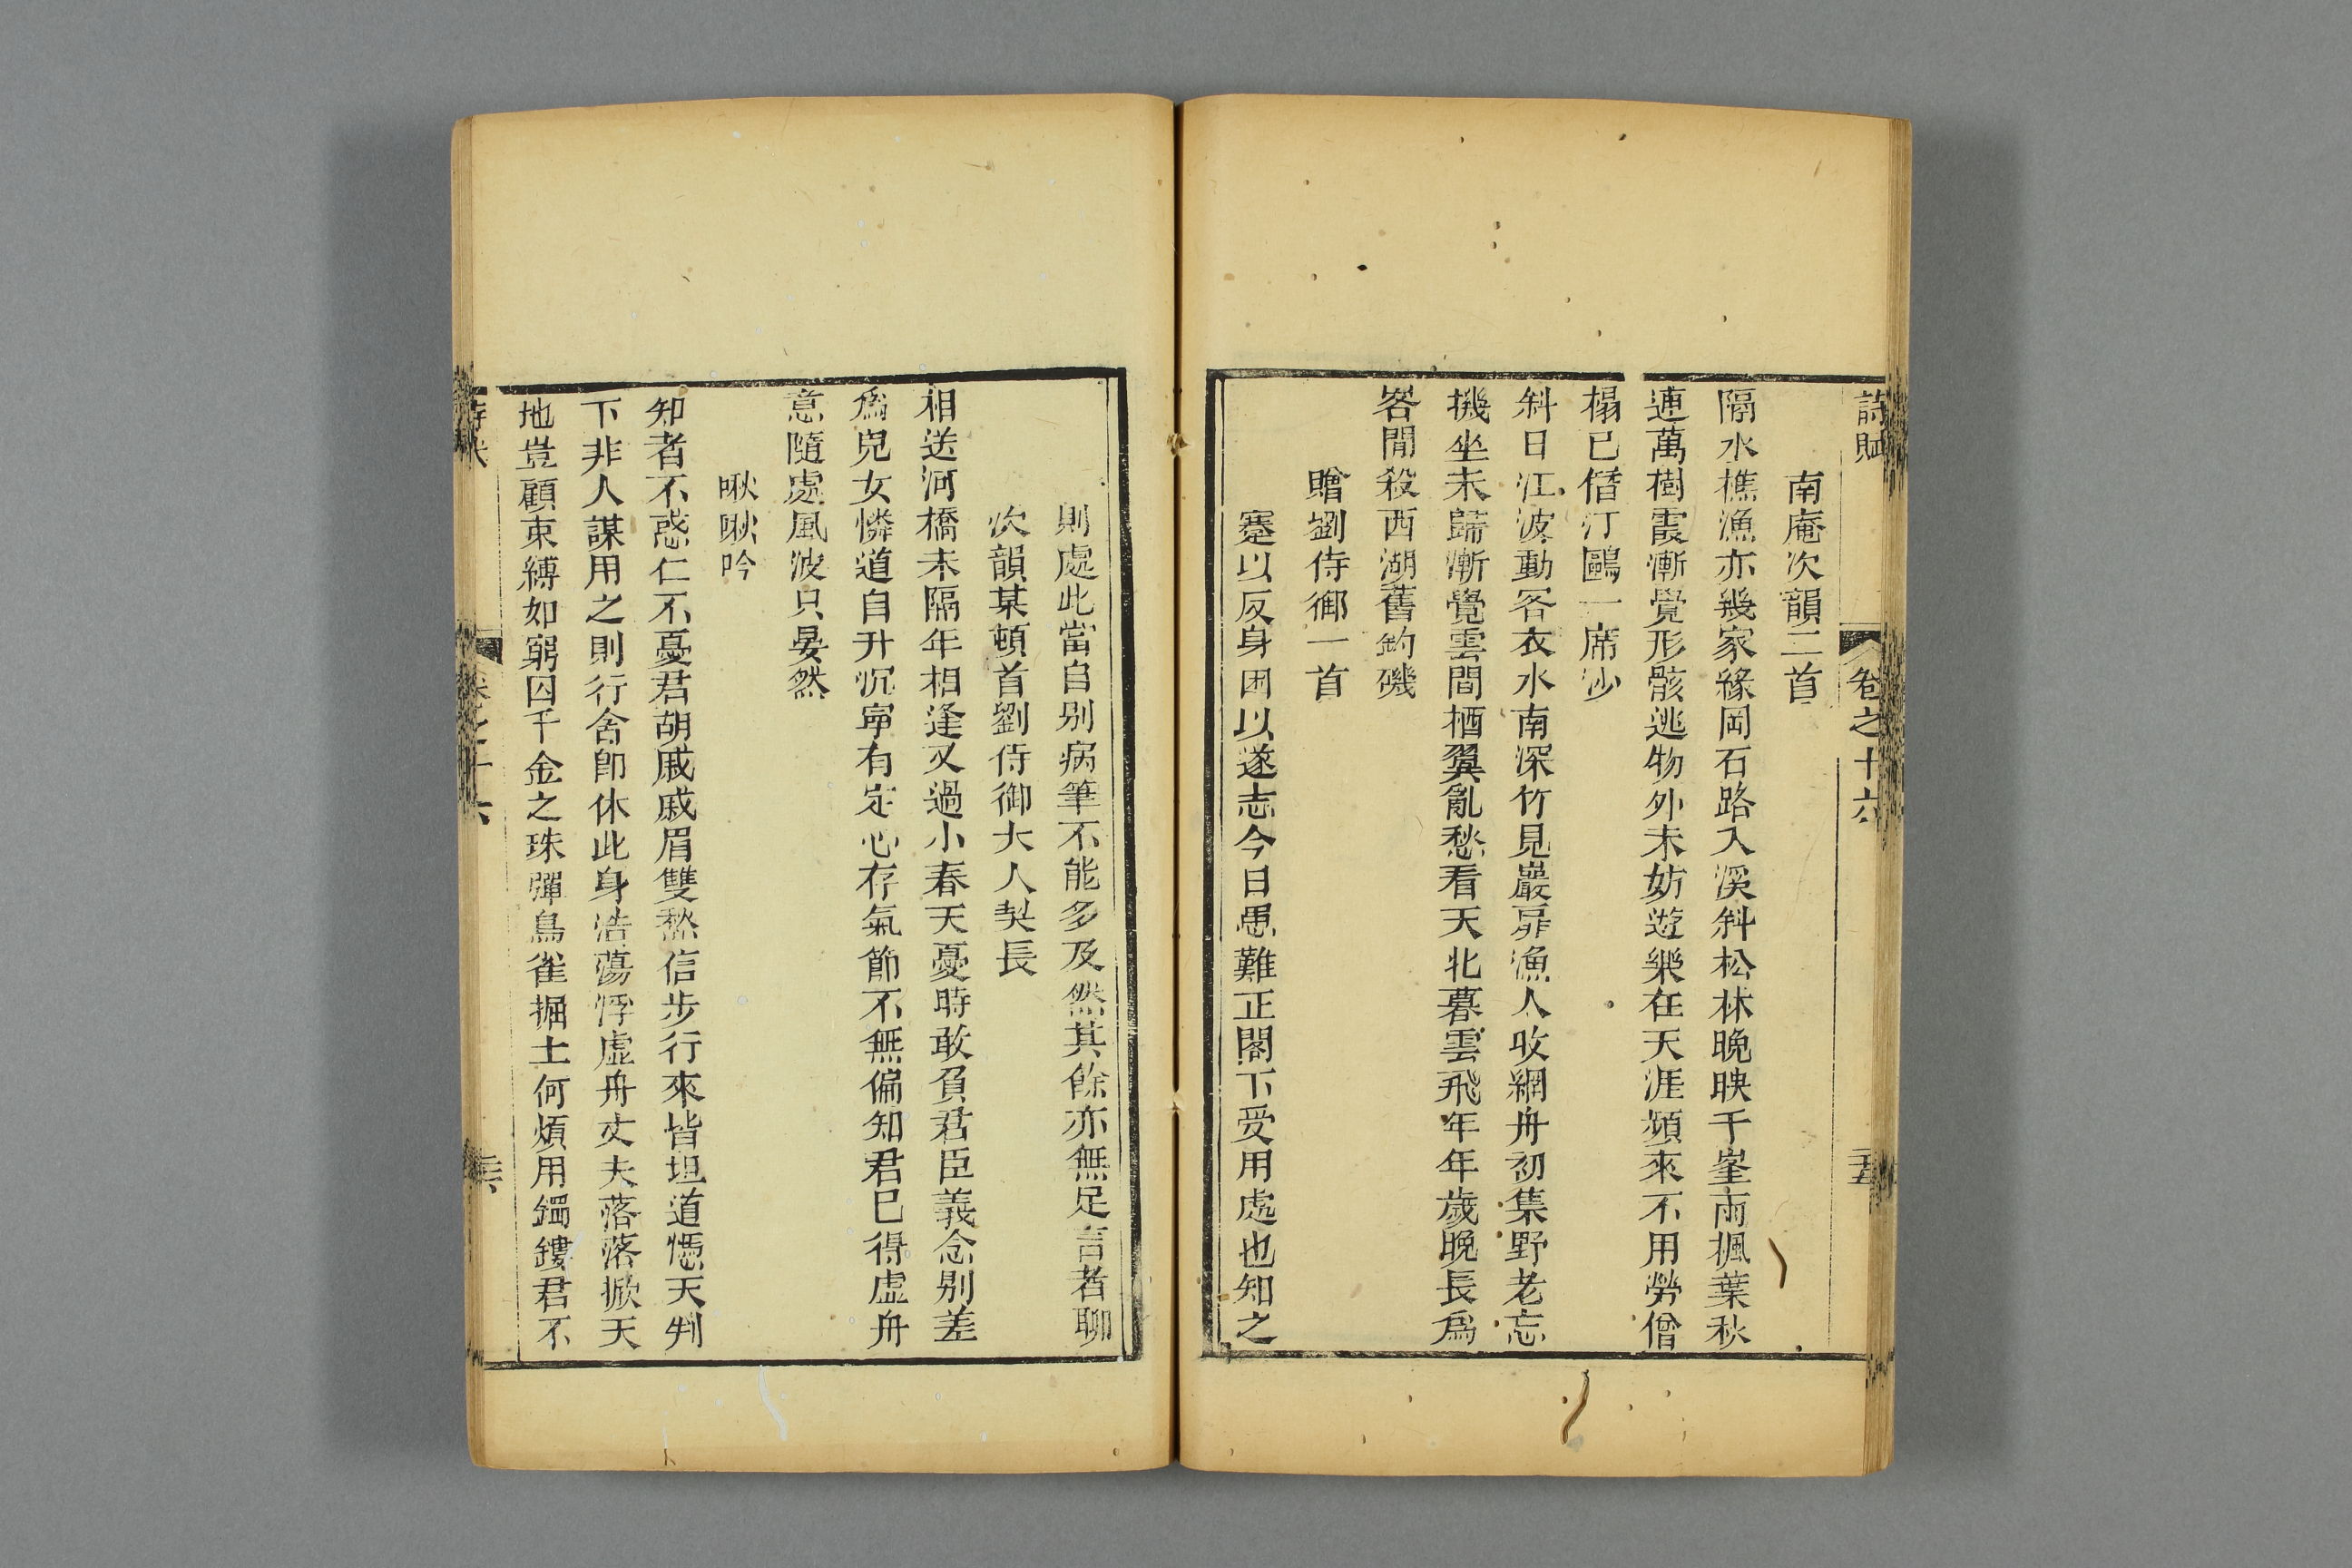 詩賦 卷之十六 三十五
南庵次韻二首
隔水樵漁亦幾家緣岡石路入溪斜松林晚映千峯雨楓葉秋
連萬樹霞漸覺形骸逃物外未妨遊樂在天涯頻來不用勞僧
榻已僭汀鷗一席沙
斜日江波動客衣水南深竹見巖扉漁人收網舟初集野老忘
機坐未歸漸覺雲間栖翼亂愁看天北暮雲飛年年歲晚長爲
客閒殺西湖舊釣磯
贈劉侍御一首
蹇以反身困以遂志今日患難正閣下受用處也知之
則處此當自别病筆不能多及然其餘亦無足言者聊
次韻某頓首劉侍御大人契長
相送河橋未隔年相逢又過小春天憂時敢負君臣義念别羞
爲兒女憐道自升沉寧有定心存氣節不無偏知君已得虛舟
意隨處風波只晏然
啾啾吟
知者不惑仁不憂君胡戚戚眉雙愁信步行來皆坦道憑天判
下非人謀用之則行舍即休此身浩蕩浮虛舟丈夫落落掀天
地豈顧束縛如窮囚千金之珠彈鳥雀掘土何煩用鐲鏤君不